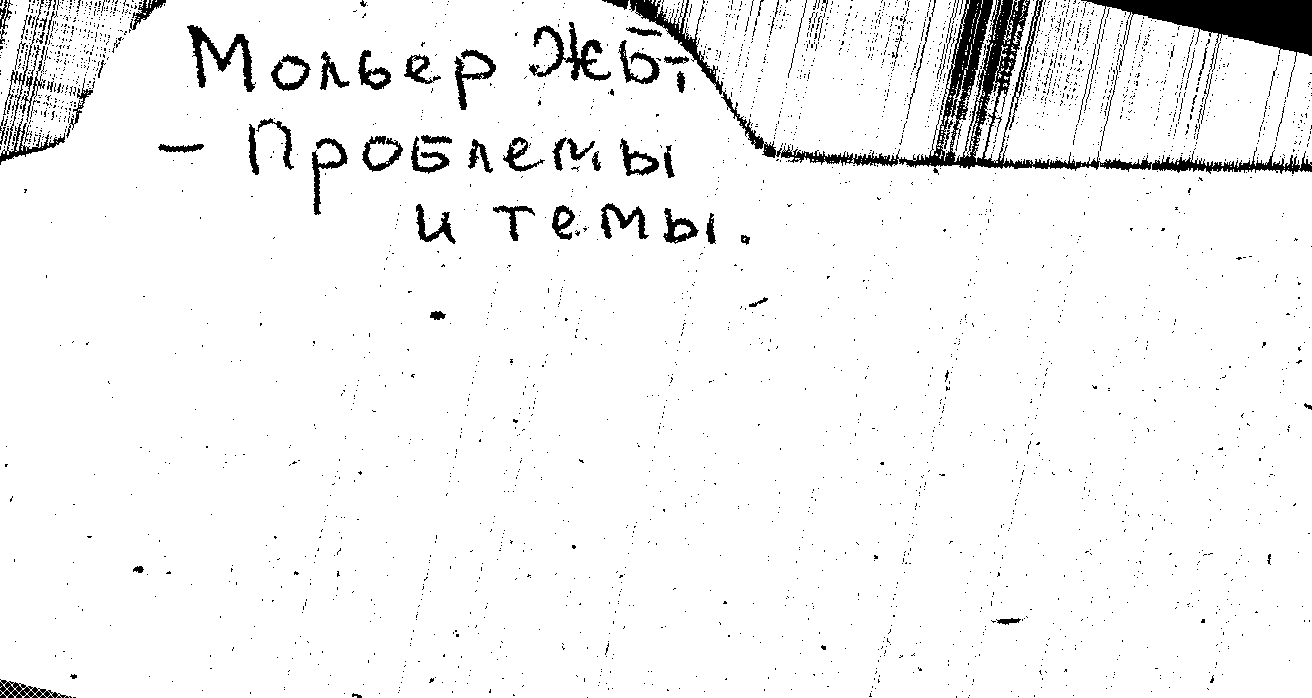 Мольер ЖБТ
- Проблемы
и темы.